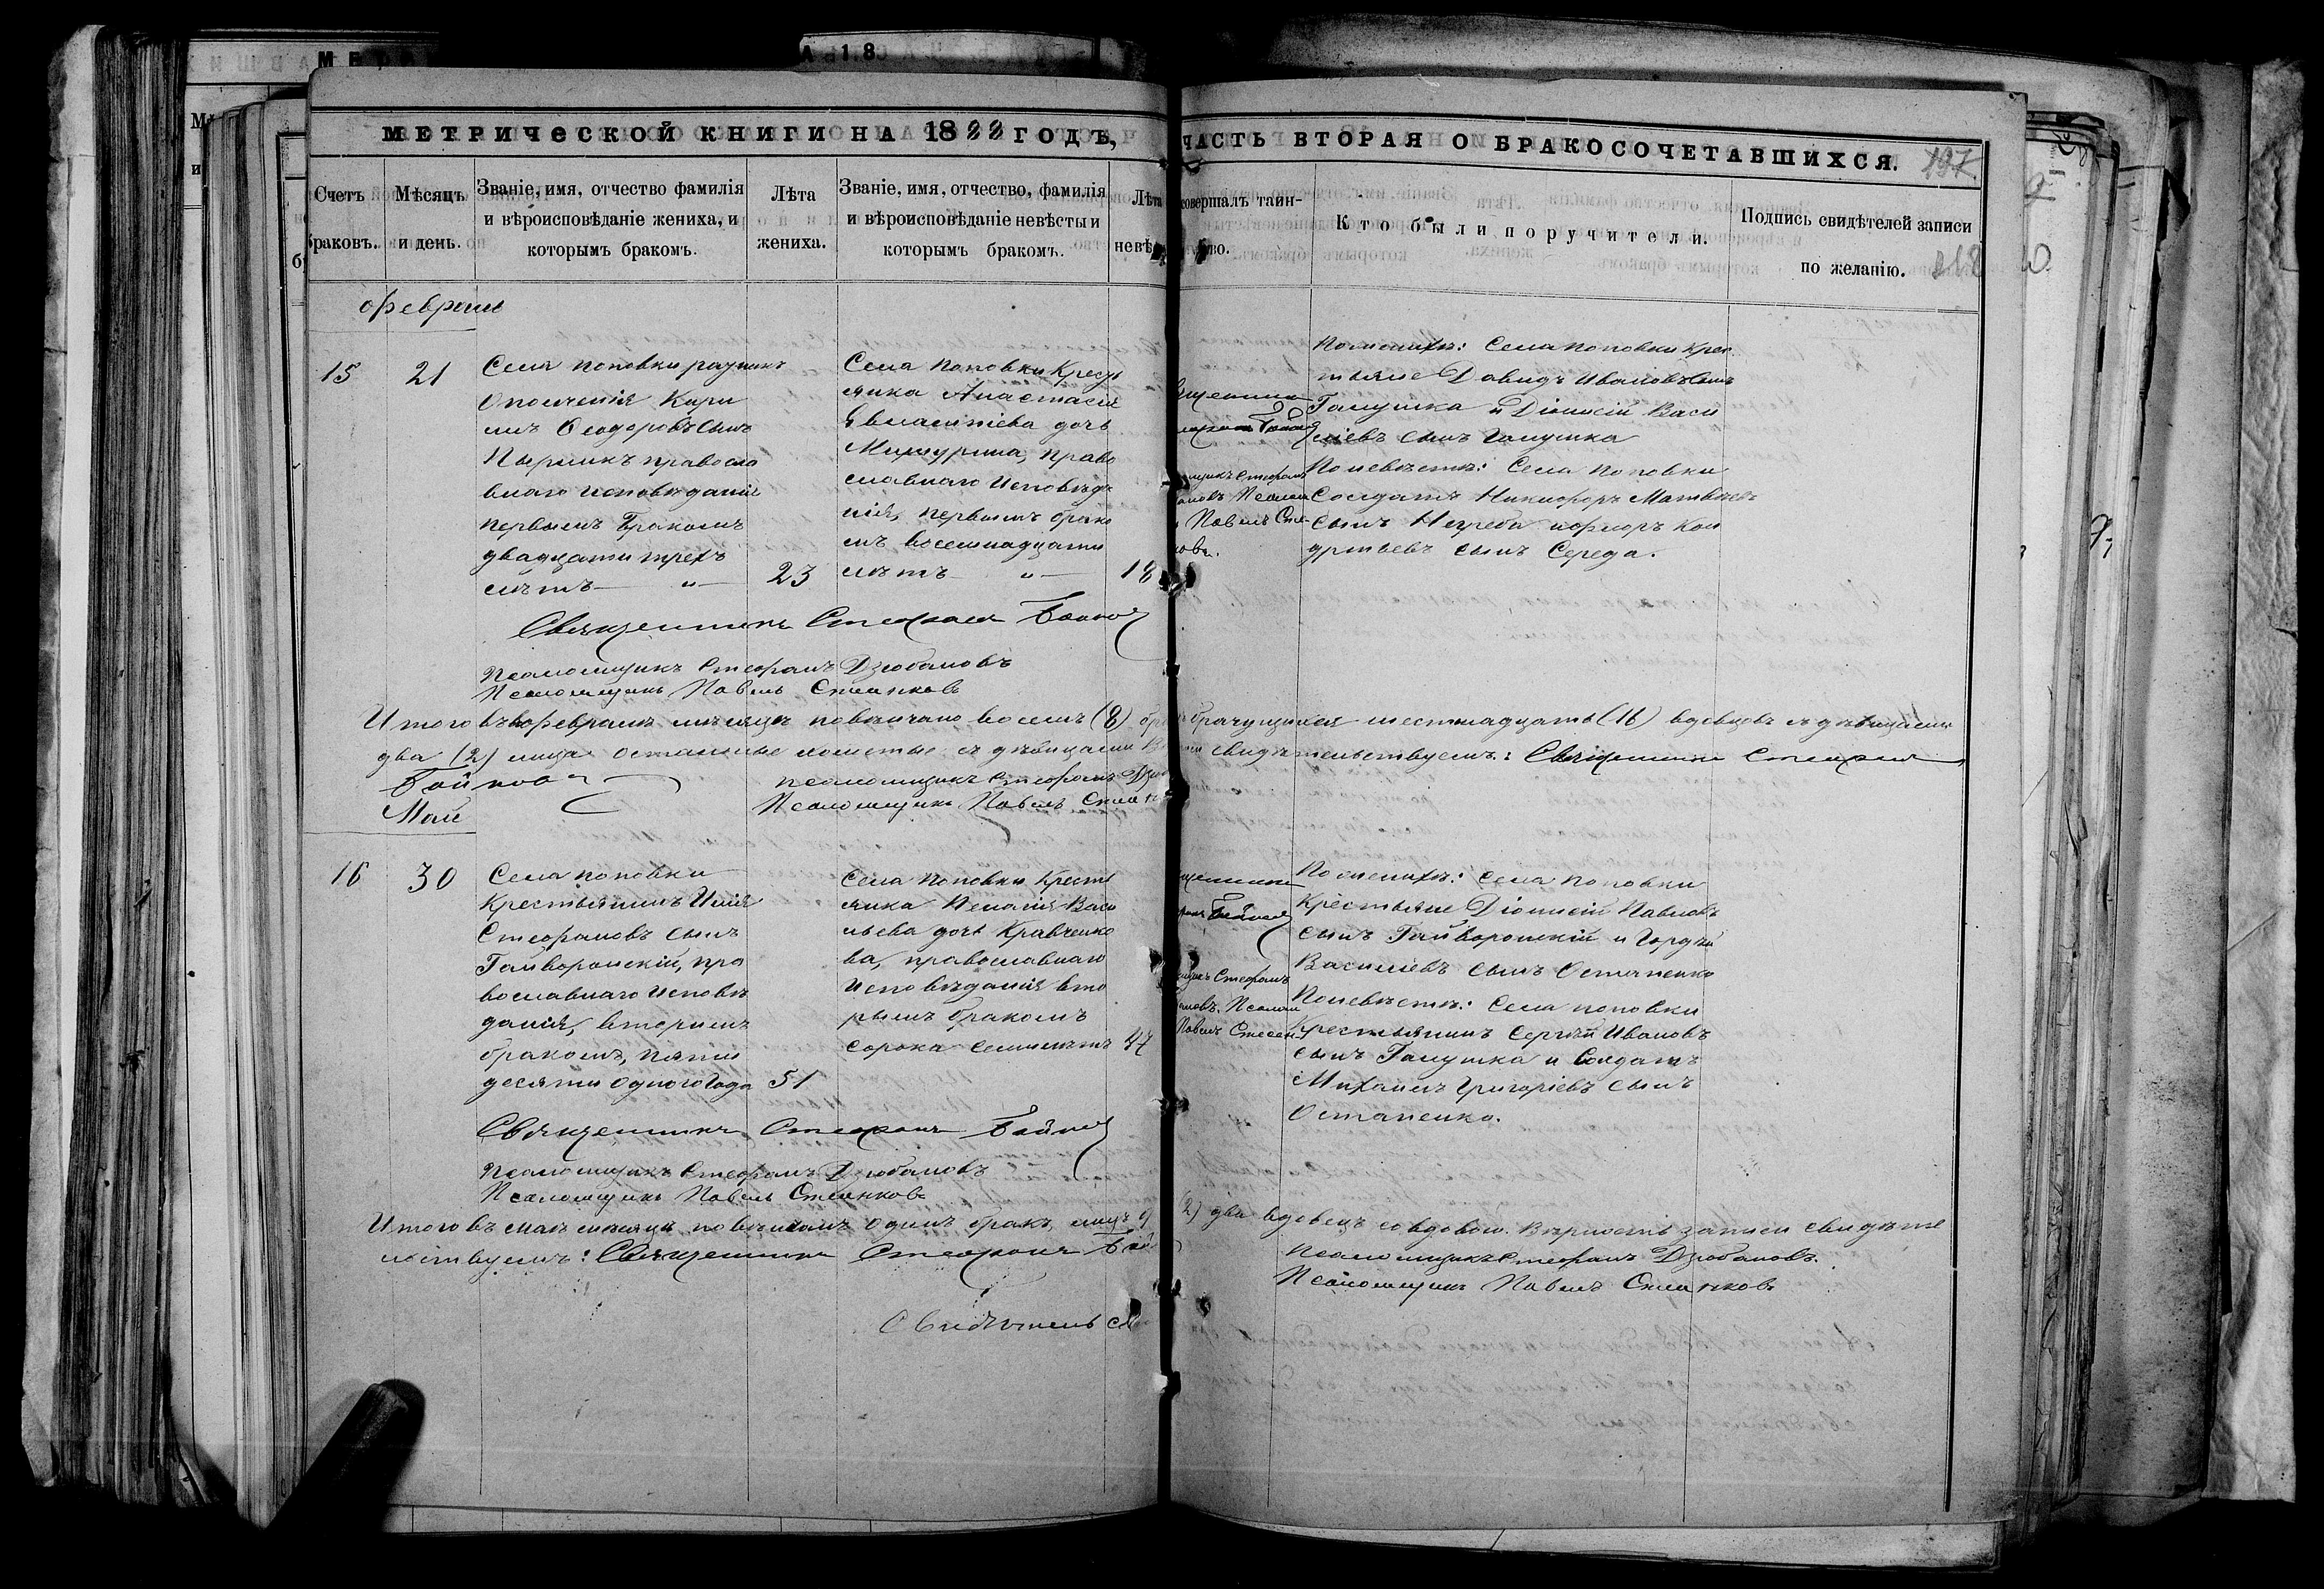 МЕТРИЧЕСКОЙ КНИГИ НА 1888 ГОДЪ,
ЧАСТЬ ВТОРАЯ О БРАКОСОЧЕТАВШИХСЯ.
197
Счетъ браковъ.
Мѣсяцъ и день.
Званіе, имя, отчество фамилія
и вѣроисповѣданіе жениха, и
которымъ бракомъ.
Лѣта
жениха.
Званіе, имя, отчество, фамилія
и вѣроисповѣданіе невѣсты и
которымъ бракомъ.
Лѣта
невѣ
совершалъ таин-
во.
Кто были поручители.
Подпись свидѣтелей записи
по желанію.
218
Февраль
15
21
Села Поповки ратникъ
Ополченія Кири
лъ Ѳеодоровъ сынъ
православ
наго исповѣданія
первымъ бракомъ
двадцати трехъ
лѣтъ
23
Села Поповки Кресть
янка Анастасія
дочь
право
славнаго исповѣда
нія, первымъ брако
мъ восемнадцати
лѣтъ
18
Священникъ Стефанъ Бойко
Псаломщикъ Стефанъ Дзюбановъ
Псаломщикъ Павелъ
По женихѣ: Села Поповки Крес
тьяне Давидъ Ивановъ сынъ
Галушка и Діонисій Васи
ліевъ сынъ Галушка
По невѣстѣ: Села Поповки
Солдатъ Никифоръ Матвѣевъ
сынъ Негреба и Флоръ Кон
дратьевъ сынъ Середа.
Итого въ февралѣ мѣсяцѣ повѣнчано восемь (8) бр
брачущихся шестнадцать (16) вдовцовъ съ дѣвицами
два (2) лица остальные холостые съ дѣвицами
свидѣтельствуемъ: Священникъ Стефанъ
Бойковъ
Псаломщикъ Стефанъ
Псаломщикъ Павелъ
Май
16
30
Села Поповки
Крестьянинъ Илія
Стефановъ сынъ
Гайворонскій, пра
вославнаго исповѣ
данія, вторымъ
бракомъ, пяти
десяти одного года
51
Села Поповки Кресть
янка Пелагія Васи
льева дочь Кравченко
ва, православнаго
исповѣданія вто
рымъ бракомъ
сорока семи лѣтъ
47
Священникъ Стефанъ Бойко
Псаломщикъ Стефанъ Дзюбановъ
Псаломщикъ Павелъ
По женихѣ: Села Поповки
Крестьяне Діонисій Павловъ
сынъ Гайворонскій и Гордѣй
Василіевъ сынъ Остапенко
По невѣстѣ: Села Поповки
Крестьянинъ Сергѣй Ивановъ
сынъ Галушка и Солдатъ
Михаилъ Григоріевъ сынъ
Остапенко.
Итого въ маѣ мѣсяцѣ повѣнчанъ одинъ бракъ, лицъ
(2) два вдовецъ со вдовою. Вѣрность записи свидѣте
льствуемъ: Священникъ Стефанъ
Псаломщикъ Стефанъ Дзюбановъ.
Псаломщикъ Павелъ